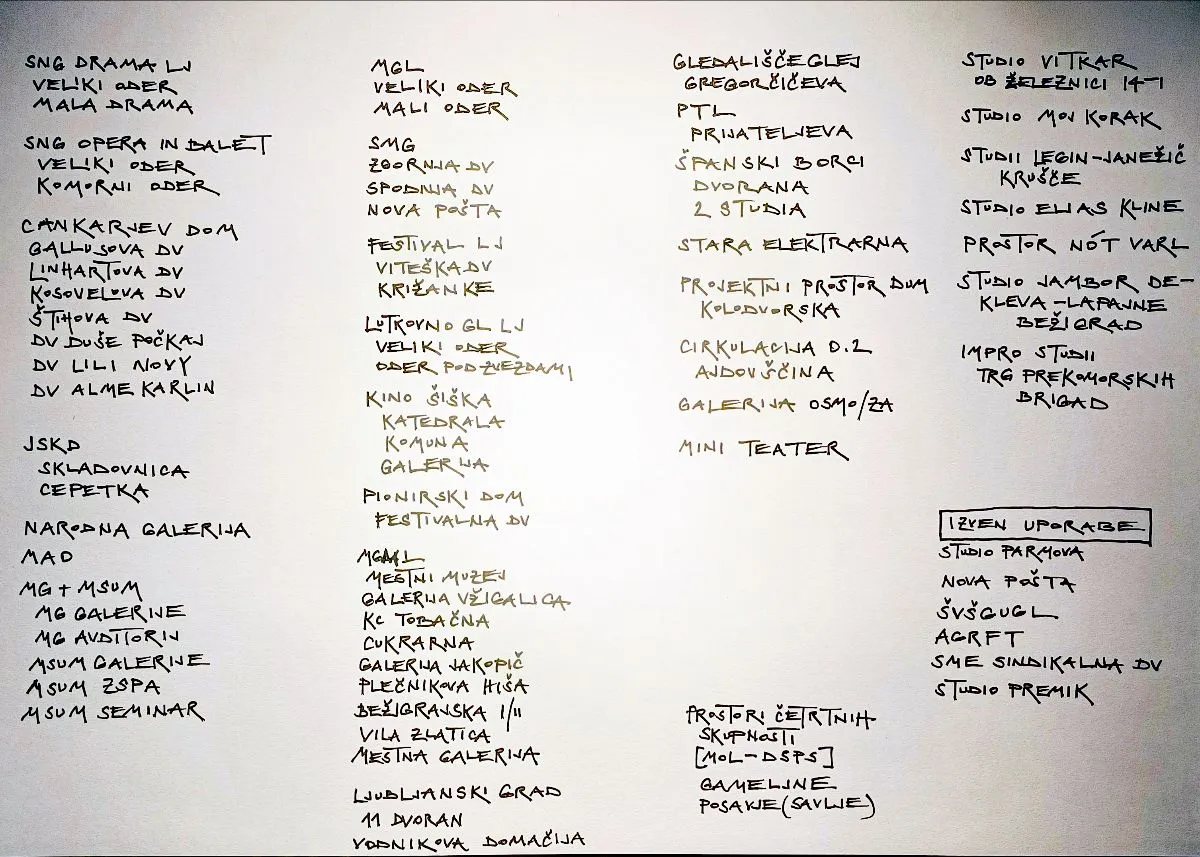 SNG DRAMA LJ
VELIKI ODER
MALA DRAMA
SNG OPERA IN BALET
VELIKI ODER
KOMORNI ODER
CANKARJEV DOM
GALLUSOVA DV
LINHARTOVA DV
KOSOVELOVA DV
ŠTIHOVA DV
DV DUŠE POČKAJ
DV LILI NOVY
DV ALME KARLIN
JSKD
SKLADOVNICA
CEPETKA
NARODNA GALERIJA
MAO
MG + MSUM
MG GALERIJE
MG AVDITORIJ
MSUM GALERIJE
MSUM ZSPA
MSUM SEMINAR
MGL
VELIKI ODER
MALI ODER
SMG
ZGORNJA DV
SPODNJA DV
NOVA POŠTA
FESTIVAL LJ
VITEŠKA DV
KRIŽANKE
LUTKOVNO GL LJ
VELIKI ODER
ODER POD ZVEZDAMI
KINO ŠIŠKA
KATEDRALA
KOMUNA
GALERIJA
PIONIRSKI DOM
FESTIVALNA DV
MGML
MESTNI MUZEJ
GALERIJA VŽIGALICA
KC TOBAČNA
CUKRARNA
GALERIJA JAKOPIČ
PLEČNIKOVA HIŠA
BEŽIGRAJSKA I/II
VILA ZLATICA
MESTNA GALERIJA
LJUBLJANSKI GRAD
11 DVORAN
VODNIKOVA DOMAČIJA
GLEDALIŠČE GLEJ
GREGORČIČEVA
PTL
PRIJATELJEVA
ŠPANSKI BORCI
DVORANA
2 STUDIA
STARA ELEKTRARNA
PROJEKTNI PROSTOR DUM
KOLODVORSKA
CIRKULACIJA 0.2
AJDOVŠČINA
GALERIJA OSMO/ZA
MINI TEATER
PROSTORI ČETRTNIH
SKUPNOSTI
[MOL-DSPS]
GAMELJNE
POSAVJE (SAVLJE)
STUDIO VITKAR
OB ŽELEZNICI 14-1
STUDIO MOJ KORAK
STUDII LEGIN-JANEŽIČ
KRUŠČE
STUDIO ELIAS KLINE
PROSTOR NÓT VARL
STUDIO JAMBOR DE-
KLEVA-LAPAJNE
BEŽIGRAD
IMPRO STUDII
TRG PREKOMORSKIH
BRIGAD
IZVEN UPORABE
STUDIO PARMOVA
NOVA POŠTA
ŠVŠGUGL
AGRFT
SME SINDIKALNA DV
STUDIO PREMIK